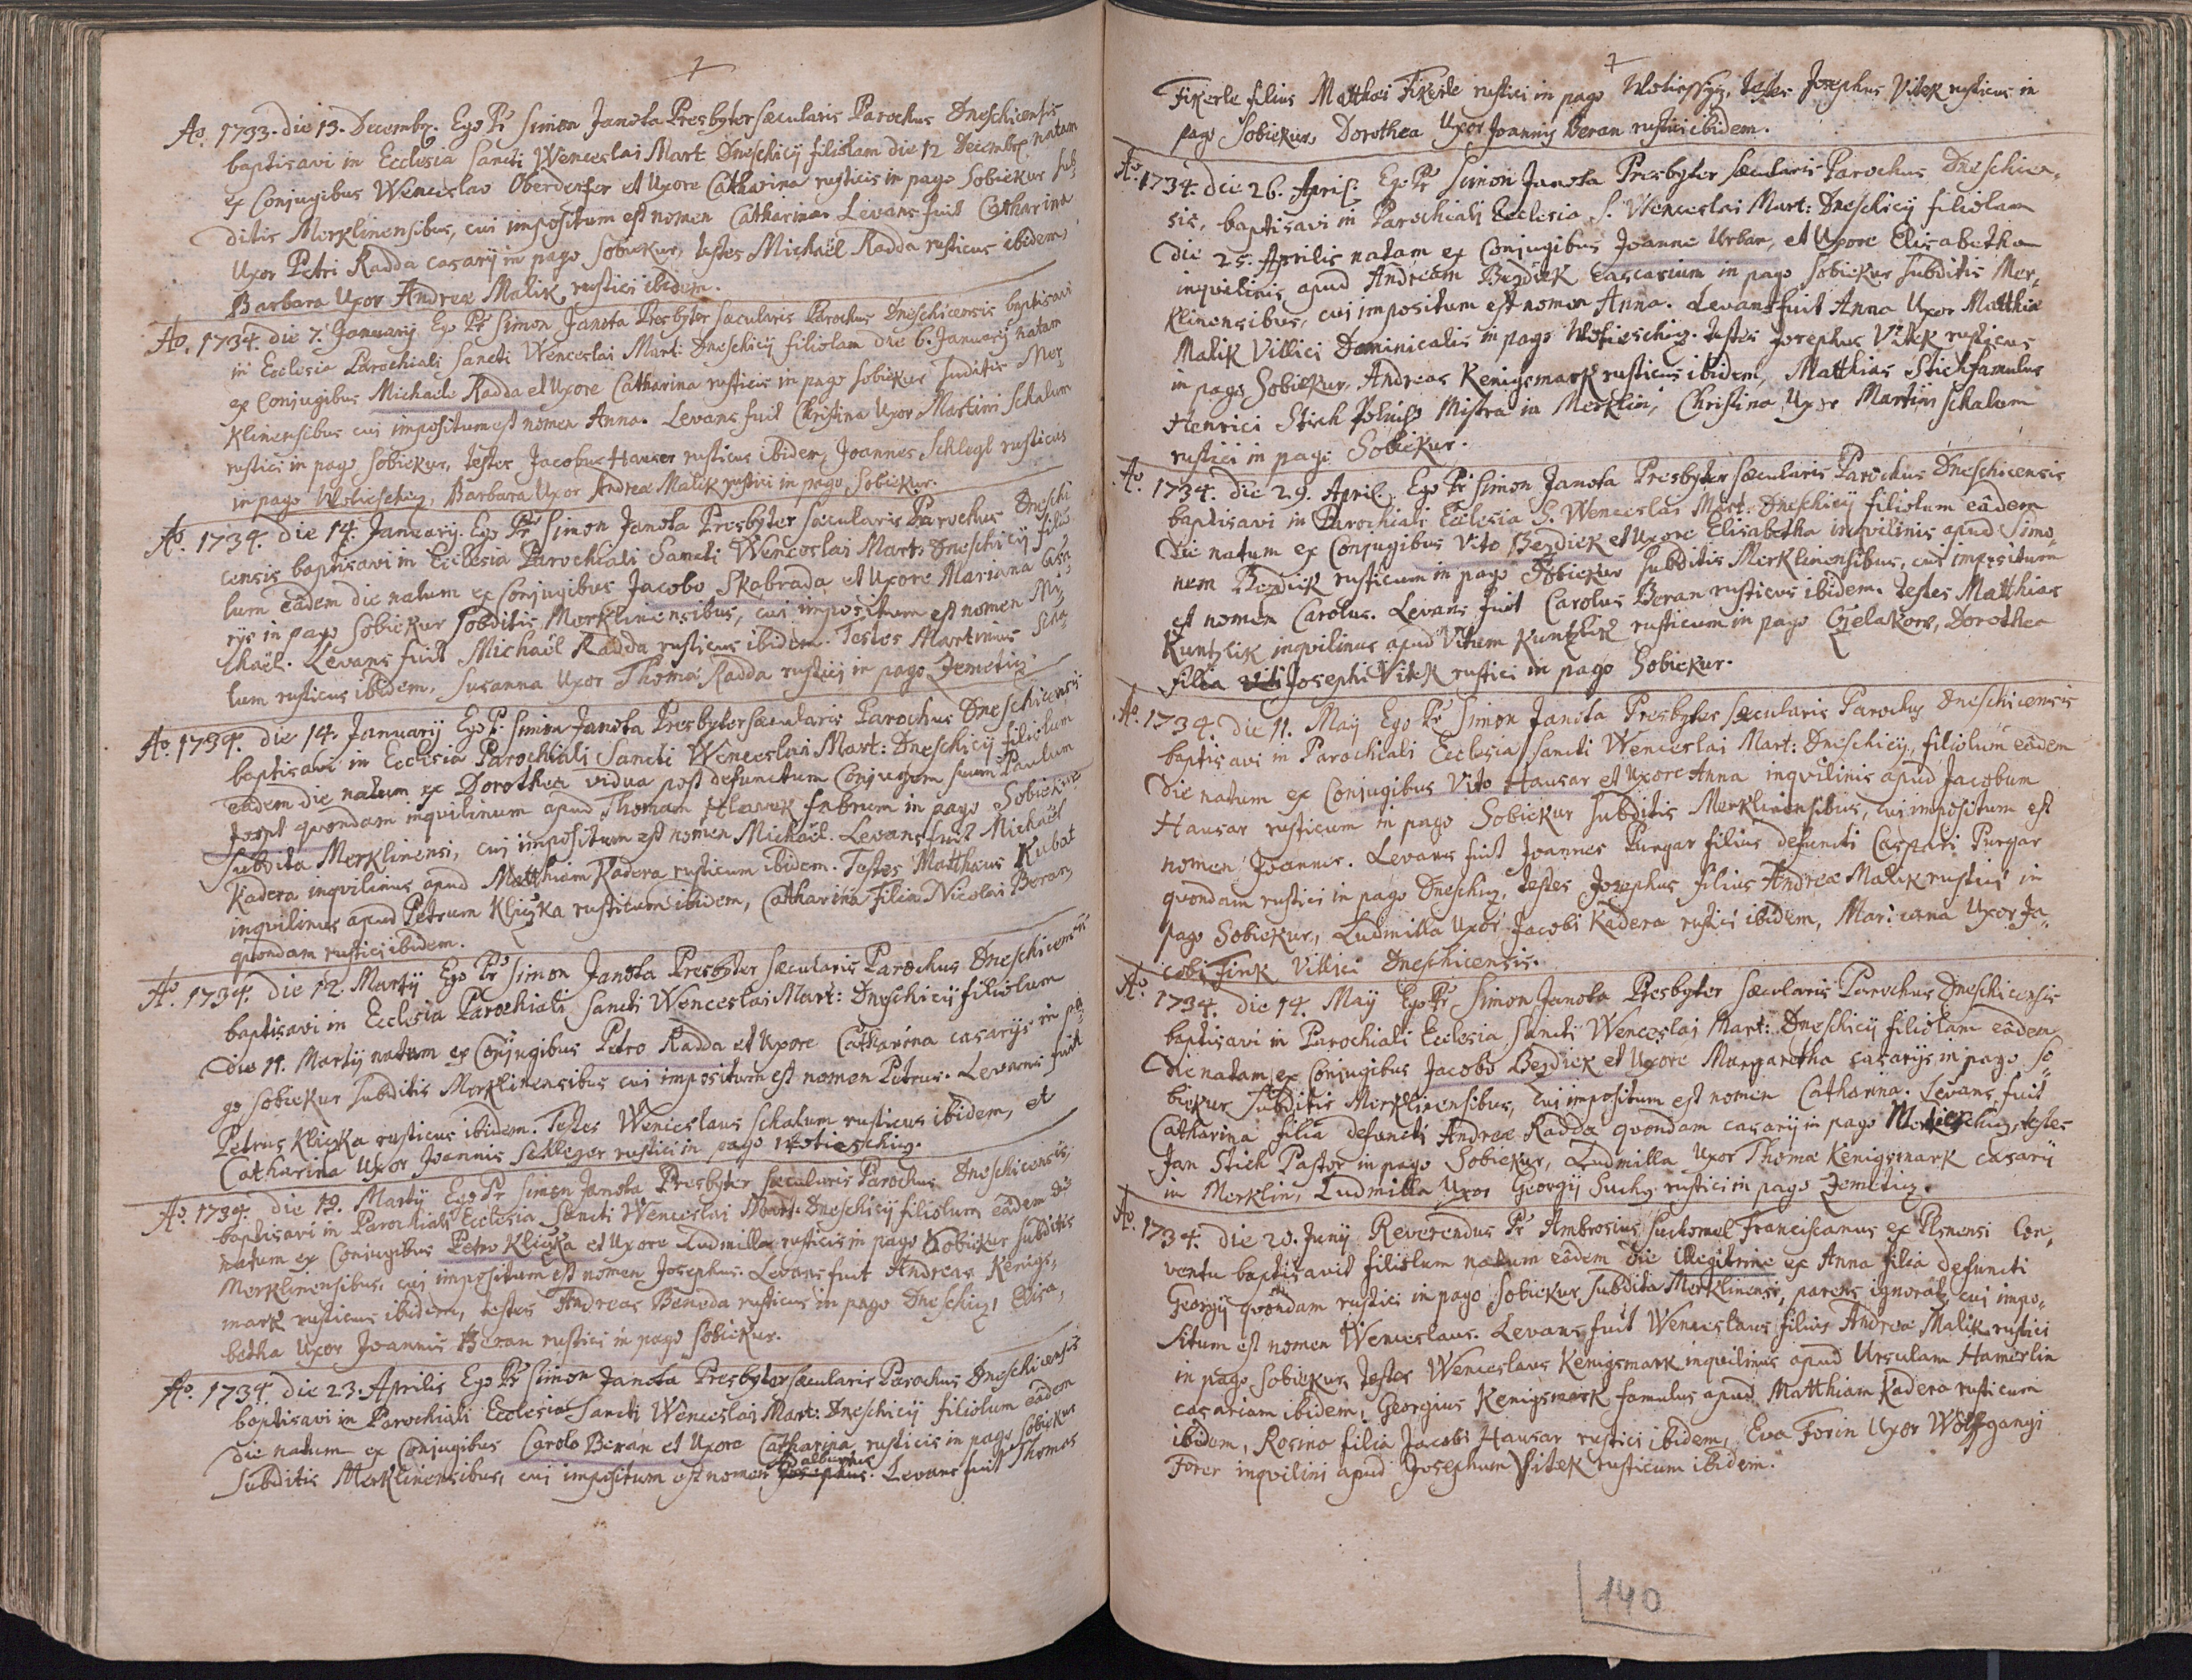 7
Ao. 1733. die 13. Decembr. Ego Pr Simon Janota Presbyter sæcularis Parochus Dneschicensis
baptisavi in Ecclesia Sancti Wenceslai Mart. Dneschicij filiolam die 12 Decembr natam
ex Conjugibus Wenceslao Oberdorfer et Uxore Catharina rusticis in pago Sobiekur sub,
ditis Merklinensibus, cui impositum est nomen Catharina. Levans fuit Catharina
Uxor Petri Radda casarij in pago Sobiekur, testes Michaël Radda rusticus ibidem,
Barbara Uxor Andreæ Malik rustici ibidem.
Ao. 1734. die 7. Januarij Ego Pr Simon Janota Presbyter sæcularis Parochus Dneschicensis baptisavi
in Ecclesia Parochiali Sancti Wenceslai Mart: Dneschicij filiolam die 6. Januarij natam
ex Conjugibus Michaele Radda et Uxore Catharina rusticis in pago Sobiekur Suditis Mer,
klinensibus cui impositum est nomen Anna. Levans fuit Christina Uxor Martini Schalum
rustici in pago Sobiekur, testes Jacobus Hauser rusticus ibidem, Joannes Schlegl rusticus
in pago Wotieschig, Barbara Uxor Andreæ Malik rustici in pago Sobiekur.
Ao. 1734. die 14. Januarij. Ego Pr Simon Janota Presbyter sæcularis Parochus Dneschi
censis baptisavi in Ecclesia Parochiali Sancti Wenceslai Mart: Dneschicij filio
lum eâdem die natum ex Conjugibus Jacobo Skabrada et Uxore Mariana casa
rijs in pago Sobiekur Subditis Merklinensibus, cui impositum est nomen Mi,
chaël. Levans fuit Michaël Radda rusticus ibidem. Testes Martinus Scha
lum rusticus ibidem, Susanna Uxor Thomæ Radda rustici in pago Zemetig.
Ao. 1734. die 14. Januarij Ego P. Simon Janota Presbyter sæcularis Parochus Dneschicensis
baptisavi in Ecclesia Parochiali Sancti Wenceslai Mart: Dneschicij filiolum
eâdem die natum ex Dorothea vidua post defunctum Conjugem suum Paulum
quondam inqvilinum apud Thomam fabrum in pago Sobiekur
Subdita Merklinensi, cui impositum est nomen Michaël. Levans fuit Michaël
Kadera inqvilinus apud Matthiam Kadera rusticum ibidem. Testes Matthæus Kubat
inqvilinus apud Petrum Kliczka rusticum ibidem, Catharina Filia Nicolai Beran
qvondam rustici ibidem.
Ao. 1734. die 12. Martij Ego Pr Simon Janota Presbyter sæcularis Parochus Dneschicensis
baptisavi in Ecclesia Parochiali Sancti Wenceslai Mart: Dneschicij filiolum
die 11. Martij natum ex Conjugibus Petro Radda et Uxore Catharina casarijs in pa
go Sobiekur Subditis Merklinensibus cui impositum est nomen Petrus. Levans fuit
Petrus Kliczka rusticus ibidem. Testes Wenceslaus Schalum rusticus ibidem, et
Catharina Uxor Joannis Schleger rustici in pago Wotieschig.
Ao. 1734. die 19. Martij Ego Pr Simon Janota Presbyter sæcularis Parochus Dneschicensis,
baptisavi in Parochiali Ecclesia Sancti Wenceslai Mart: Dneschicij filiolum eâdem die
natum ex Conjugibus Petro Kliczka et Uxore Ludmilla rusticis in pago Sobiekur subditis
Merklinensibus, cui impositum est nomen Josephus. Levans fuit Andreas Kenigs,
mark rusticus ibidem, testes Andreas Benoda rusticus in pago Dneschig, Elisa,
betha Uxor Joannis Beran rustici in pago Sobiekur.
Ao. 1734. die 23. Aprilis Ego Pr Simon Janota Presbyter sæcularis Parochus Dneschicensis
baptisavi in Parochiali Ecclesia Sancti Wenceslai Mart: Dneschicij filiolum eâdem
die natum ex Conjugibus Carolo Beran et Uxore Catharina rusticis in pago Sobiekur
Adalbertus
Subditis Merklinensibus, cui impositum est nomen Josephus. Levans fuit Thomas
7
Fikerle filius Matthæi Fikerle rustici in pago Wotieschig, testes Josephus Vitek rusticus in
pago Sobiekur, Dorothea Uxor Joannis Beran rustici ibidem.
Ao. 1734. die 26. April. Ego Pr Simon Janota Presbyter Sæcularis Parochus Dneschicen,
sis, baptisavi in Parochiali Ecclesia S. Wenceslai Mart: Dneschicij filiolam
die 25. Aprilis natam ex Conjugibus Joanne Urban, et Uxore Elisabetha
inqvilinis apud Andream Bezdiek Cascarium in pago Sobiekur Subditis Mer,
klinensibus, cui impositum est nomen Anna. Levans fuit Anna Uxor Matthiæ
Malik Villici Dominicalis in pago Wotieschig. testes Josephus Vitek rusticus
in pago Sobiekur, Andreas Kenigsmark rusticus ibidem, Matthias Stich famulus
Henrici Stich Mistra in Merklin, Christina Uxor Martini Schalum
rustici in pago Sobiekur.
Ao. 1734. die 29. April. Ego Pr Simon Janota Presbyter Sæcularis Parochus Dneschicensis
baptisavi in Parochiali Ecclesia S. Wenceslai Mart: Dneschicij filiolum eâdem
die natum ex Conjugibus Vito Bezdiek et Uxore Elisabetha inqvilinis apud Simo,
nem Bezdiek rusticum in pago Sobiekur Subditis Merklinensibus, cui impositum
est nomen Carolus. Levans fuit Carolus Beran rusticus ibidem. testes Matthias
Kuntzlik inqvilinus apud Vitum Kuntzlik rusticum in pago Gzelakow, Dorothea
filia Viti Josephi Vitek rustici in pago Sobiekur.
Ao. 1734. die 11. Maij Ego Pr Simon Janota Presbyter Sæcularis Parochus Dneschicensis
baptisavi in Parochiali Ecclesia Sancti Wenceslai Mart: Dneschicij, filiolum eâdem
die natum ex Conjugibus Vito Hausar et Uxore Anna inqvilinis apud Jacobum
Hausar rusticum in pago Sobiekur subditis Merklinensibus, cui impositum est
nomen Joannes. Levans fuit Joannes Purgar filius defuncti Caspari Purgar
qvondam rustici in pago Dneschig, testes Josephus filius Andreæ Malik rustici in
pago Sobiekur, Ludmilla Uxor Jacobi Kadera rustici ibidem, Mariana Uxor Ja,
cobi Fink Villici Dneschicensis.
Ao. 1734. die 14. Maij Ego Pr Simon Janota Presbyter Sæcularis Parochus Dneschicensis
baptisavi in Parochiali Ecclesia Sancti Wenceslai Mart: Dneschicij filiolam eâdem
die natam ex Conjugibus Jacobo Bezdiek et Uxore Margaretha casarijs in pago So,
biekur Subditis Merklinensibus, cui impositum est nomen Catharina. Levans fuit
Catharina filia defuncti Andreæ Radda qvondam casarij in pago Wotieschig, testes
Jan Stich Pastor in pago Sobiekur, Ludmilla Uxor Thomæ Kenigsmark casarij
in Merklin, Ludmilla Uxor Georgij Suchy rustici in pago Zemetig.
Ao. 1734. die 20. Junij Reverendus Pr Ambrosius Franciscanus ex Plsnensi Con,
ventu baptisavit filiolum natum eâdem die illegitime ex Anna filia defuncti
Georgij qvondam rustici in pago Sobiekur Subdita Merklinensi, parens ignorat, cui impo,
situm est nomen Wenceslaus. Levans fuit Wenceslaus filius Andreæ Malik rustici
in pago Sobiekur, testes Wenceslaus Kenigsmark inqvilinus apud Ursulam Hamerlin
casariam ibidem, Georgius Kenigsmark famulus apud Matthiam Kadera rusticum
ibidem, Rosina filia Jacobi Hausar rustici ibidem, Eva Forin Uxor Wolfgangi
Forer inqvilini apud Josephum Vitek rusticum ibidem.
140